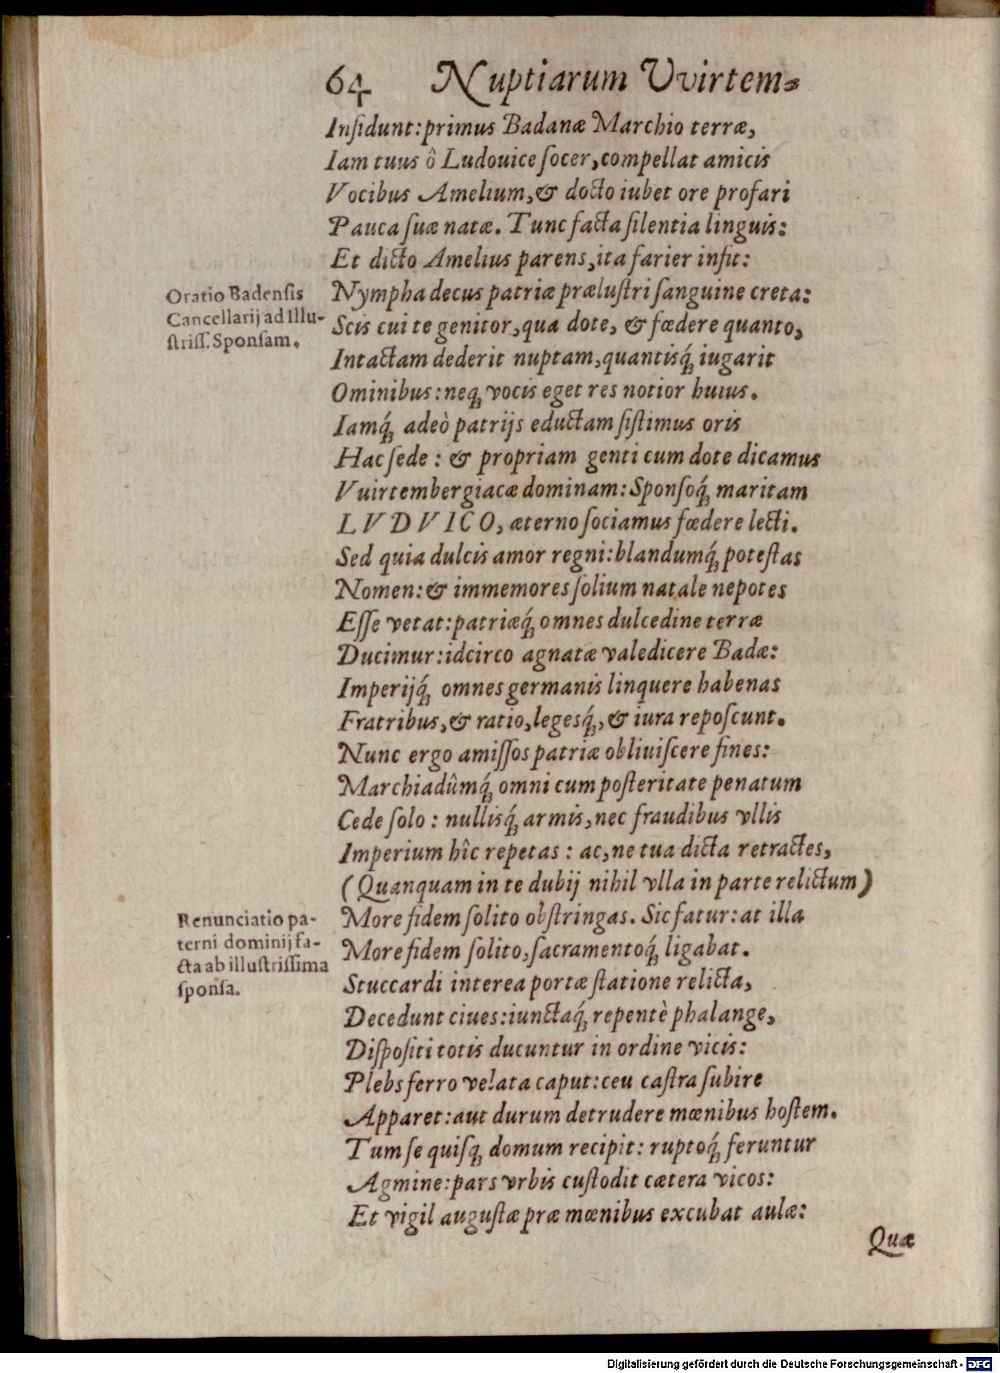 64 Nuptiarum Vvirtem-
Insidunt: primus Badanæ Marchio terræ,
Iam tuus ô Ludouice socer, compellat amicis
Vocibus Amelium, & docto iubet ore profari
Pauca suæ natæ. Tunc facta silentia linguis:
Et dicto Amelius parens, ita farier infit:
Oratio Badensis
Cancellarij ad Illu-
striss. Sponsam.
Nympha decus patriæ prælustri sanguine creta:
Scis cui te genitor, qua dote, & fœdere quanto,
Intactam dederit nuptam, quantisq́; iugarit
Ominibus: neq; vocis eget res notior huius.
Iamq́; adeò patrijs eductam sistimus oris
Hac sede: & propriam genti cum dote dicamus
Vuirtembergiacæ dominam: Sponsoq́; maritam
LVDVICO, æterno sociamus fœdere lecti.
Sed quia dulcis amor regni: blandumq́; potestas
Nomen: & immemores solium natale nepotes
Esse vetat: patriæq́; omnes dulcedine terræ
Ducimur: idcirco agnatæ valedicere Badæ:
Imperijq́; omnes germanis linquere habenas
Fratribus, & ratio, legesq́;, & iura reposcunt.
Nunc ergo amissos patriæ obliuiscere fines:
Marchiadûmq́; omni cum posteritate penatum
Cede solo: nullisq́; armis, nec fraudibus vllis
Imperium hîc repetas: ac, ne tua dicta retractes,
(Quanquam in te dubij nihil vlla in parte relictum)
Renunciatio pa-
terni dominij fa-
cta ab illustrissima
sponsa.
More fidem solito obstringas. Sic fatur: at illa
More fidem solito, sacramentoq́; ligabat.
Stuccardi interea portæ statione relicta,
Decedunt ciues: iunctaq́; repentè phalange,
Dispositi totis ducuntur in ordine vicis:
Plebs ferro velata caput: ceu castra subire
Apparet: aut durum detrudere mœnibus hostem.
Tum se quisq; domum recipit: ruptoq́; feruntur
Agmine: pars vrbis custodit cætera vicos:
Et vigil augustæ præ mœnibus excubat aulæ:
Quæ
Digitalisierung gefördert durch die Deutsche Forschungsgemeinschaft - DFG